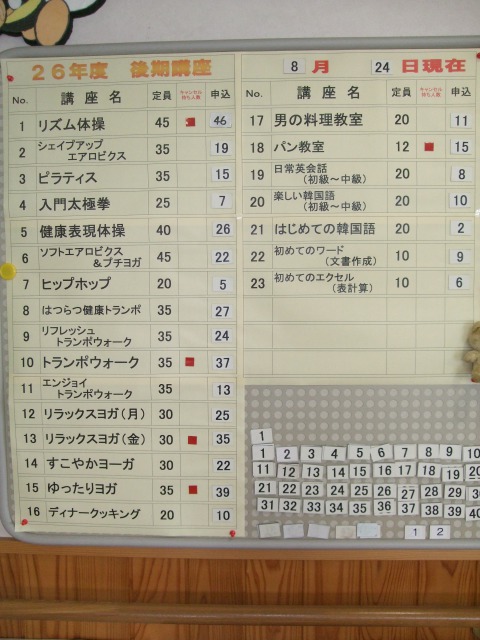 26年度 後期講座
No. 講座名 定員 キャンセル待ち人数 申込
1 リズム体操 45 46
2 シェイプアップエアロビクス 35 19
3 ピラティス 35 15
4 入門太極拳 25 7
5 健康表現体操 40 26
6 ソフトエアロビクス&プチヨガ 45 22
7 ヒップホップ 20 5
8 はつらつ健康トランポ 35 27
9 リフレッシュトランポウォーク 35 24
10 トランポウォーク 35 37
11 エンジョイトランポウォーク 35 13
12 リラックスヨガ(月) 30 25
13 リラックスヨガ(金) 30 35
14 すこやかヨーガ 30 22
15 ゆったりヨガ 35 39
16 ディナークッキング 20 10
8 月 24 日現在
No. 講座名 定員 キャンセル待ち人数 申込
17 男の料理教室 20 11
18 パン教室 12 15
19 日常英会話(初級〜中級) 20 8
20 楽しい韓国語(初級〜中級) 20 10
21 はじめての韓国語 20 2
22 初めてのワード(文書作成) 10 9
23 初めてのエクセル(表計算) 10 6
1
1 2 3 4 5 6 7 8 9 10
11 12 13 14 15 16 17 18 19 20
21 22 23 24 25 26 27 28 29
31 32 33 34 35 36 37 38 39 40
1 2